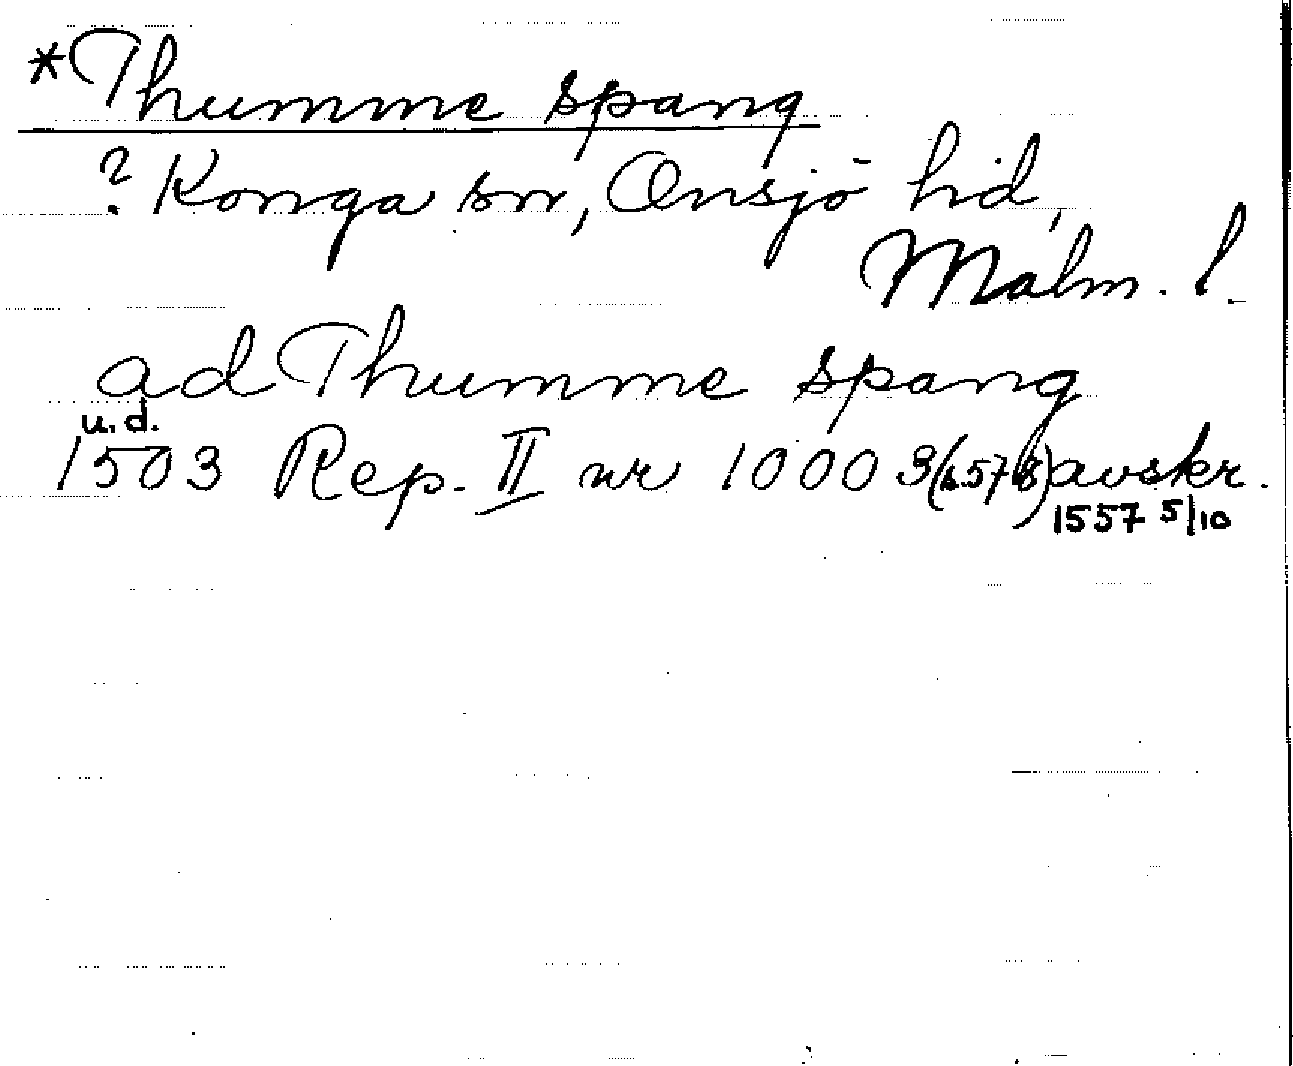 *Thumme spang
? Konga sn, Onsjö hd,
Malm. l.
ad Thumme spang
u.d.
1503 Rep. II nr 10003 (s. 578) avskr.
1557 5/10